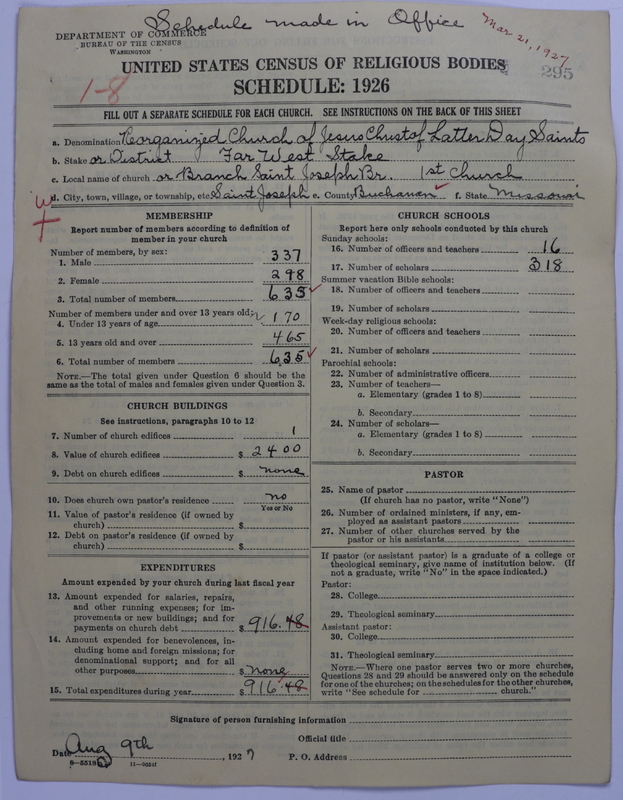 Schedule made in Office
Mar 21, 1927
DEPARTMENT OF COMMERCE
BUREAU OF THE CENSUS
WASHINGTON
UNITED STATES CENSUS OF RELIGIOUS BODIES
295
1-8
SCHEDULE: 1926
FILL OUT A SEPARATE SCHEDULE FOR EACH CHURCH. SEE INSTRUCTIONS ON THE BACK OF THIS SHEET
a. Denomination Reorganized Church of Jesus Christ of Latter Day Saints
b. Stake or District Far West Stake
c. Local name of church or Branch Saint Joseph Br. 1st Church
d. City, town, village, or township, etc. Saint Joseph e. County Buchanan f. State Missouri
MEMBERSHIP
Report number of members according to definition of
member in your church
Number of members, by sex:
1. Male 337
2. Female 298
3. Total number of members 635
Number of members under and over 13 years old:
4. Under 13 years of age 170
5. 13 years old and over 465
6. Total number of members 635
NOTE.—The total given under Question 6 should be
the same as the total of males and females given under Question 3.
CHURCH BUILDINGS
See instructions, paragraphs 10 to 12
7. Number of church edifices 1
8. Value of church edifices $ 2400
9. Debt on church edifices $ none
10. Does church own pastor's residence no
Yes or No
11. Value of pastor's residence (if owned by
church) $
12. Debt on pastor's residence (if owned by
church) $
EXPENDITURES
Amount expended by your church during last fiscal year
13. Amount expended for salaries, repairs,
and other running expenses; for im-
provements or new buildings; and for
payments on church debt $ 916.48
14. Amount expended for benevolences, in-
cluding home and foreign missions; for
denominational support; and for all
other purposes $ none
15. Total expenditures during year $ 916.48
CHURCH SCHOOLS
Report here only schools conducted by this church
Sunday schools:
16. Number of officers and teachers 16
17. Number of scholars 318
Summer vacation Bible schools:
18. Number of officers and teachers
19. Number of scholars
Week-day religious schools:
20. Number of officers and teachers
21. Number of scholars
Parochial schools:
22. Number of administrative officers
23. Number of teachers—
a. Elementary (grades 1 to 8)
b. Secondary
24. Number of scholars—
a. Elementary (grades 1 to 8)
b. Secondary
PASTOR
25. Name of pastor
(If church has no pastor, write "None")
26. Number of ordained ministers, if any, em-
ployed as assistant pastors
27. Number of other churches served by the
pastor or his assistants
If pastor (or assistant pastor) is a graduate of a college or
theological seminary, give name of institution below. (If
not a graduate, write "No" in the space indicated.)
Pastor:
28. College
29. Theological seminary
Assistant pastor:
30. College
31. Theological seminary
NOTE.—Where one pastor serves two or more churches,
Questions 28 and 29 should be answered only on the schedule
for one of the churches; on the schedules for the other churches,
write "See schedule for church."
Signature of person furnishing information
Official title
Date Aug 9th, 1927 P. O. Address
11—9524f